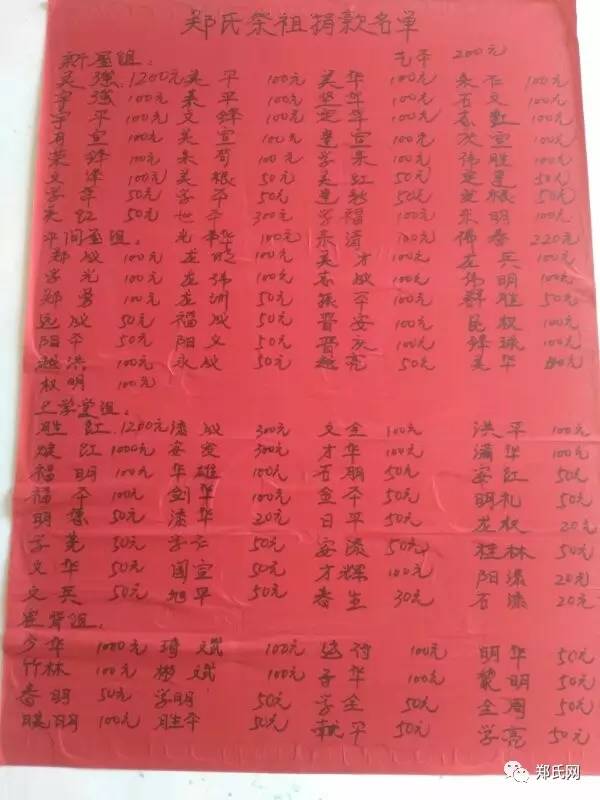 郑氏祭祖捐款名单
新屋组: 艺平 200元
吴强 1200元 吴平 100元 吴华 100元 来仁 100元
学强 100元 素平 100元 坚华 100元 石文 100元
宇平 100元 文锋 100元 定华 100元 志红 100元
有宣 100元 吴宣 100元 建宣 100元 次宣 100元
荣锋 100元 来苟 100元 学来 100元 伟胜 100元
文华 100元 吴根 50元 吴红 50元 建 50元
学华 50元 学平 50元 建 50元 根 50元
吴红 50元 世平 300元 学福 100元 东明 100元
平间屋组: 光华 100元 东清 100元 佛春 220元
郑成 100元 龙 100元 吴才 100元 龙兵 100元
学光 100元 龙伟 100元 志成 100元 伟明 100元
郑勇 100元 龙洲 50元 振平 100元 群胜 50元
远成 50元 福成 50元 晋安 100元 民权 100元
阳平 50元 阳义 50元 晋 100元 锋球 100元
越洪 100元 永成 50元 越亮 50元 吴华
权明 100元
上学堂组:
胜红 1200元 清成 300元 文全 100元 洪平 100元
焕红 1000元 安发 300元 才华 100元 清华 100元
福明 100元 华雄 100元 石明 50元 安红 50元
福平 100元 剑华 100元 金平 50元 明礼 50元
明 50元 清华 20元 日平 50元 龙权 20元
学亮 50元 学仁 50元 安流 50元 桂林 50元
文华 50元 国宣 50元 才辉 100元 阳流 20元
文兵 50元 旭平 50元 春生 30元 石流 20元
背组:
今华 1000元 琦斌 100元 远付 100元 明华 50元
竹林 100元 彬斌 100元 子华 100元 黎明 50元
春明 50元 学明 50元 学全 50元 全周 50元
晓阳 100元 胜平 50元 献平 50元 学亮 50元
郑氏网